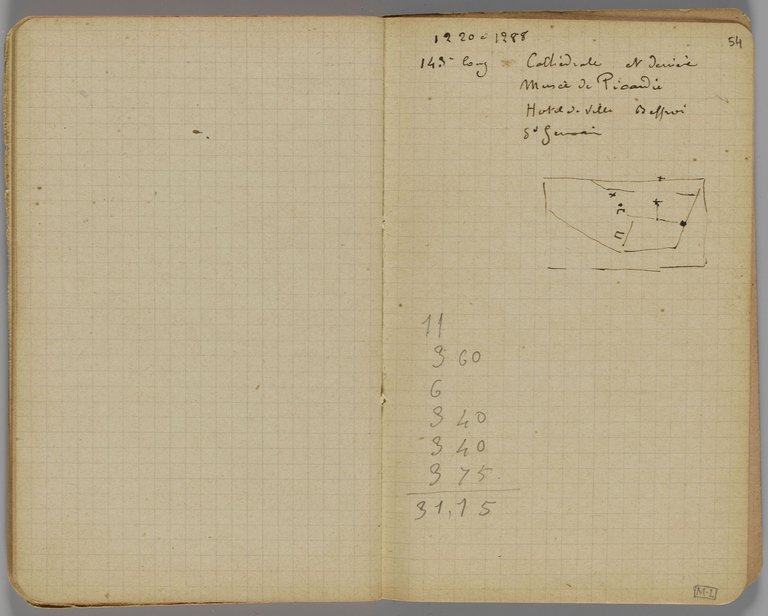 54
1220 à 1288
143 m long Cathédrale et
Musée de Picardie
Hotel de Ville Beffroi
St Germain
11
3 60
6
3 40
3 40
3 75
31,15
M-L